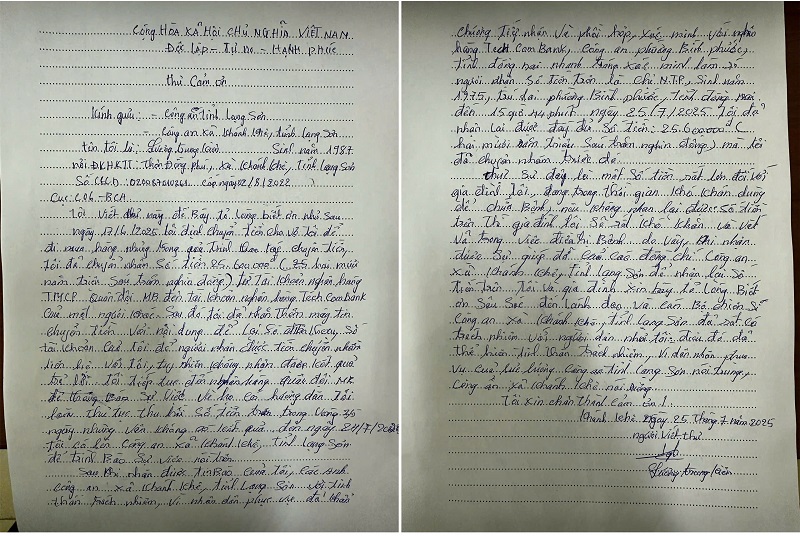 Cộng Hòa Xã Hội Chủ Nghĩa Việt Nam
Độc Lập - Tự Do - Hạnh Phúc
Thư Cảm ơn
Kính gửi: - Công an Tỉnh Lạng Sơn
- Công an xã Khánh Khê, tỉnh Lạng Sơn
Tên tôi là: Trung Sinh năm 1987
nơi ĐKHKTT: Thôn Đồng phú, xã Khánh Khê, Tỉnh Lạng Sơn
Số CCCD: Cấp ngày 02/8/2022
Cục C06 - BCA
Tôi Viết thư này để Bày tỏ Lòng biết ơn như Sau
ngày 17/6/2025 tôi định chuyển tiền cho vợ tôi để
đi mua hàng nhưng trong quá trình thao tác chuyển tiền,
tôi đã chuyển nhầm Số tiền 25.600.000 (25 hai mươi
năm triệu Sáu trăm nghìn đồng) từ tài khoản ngân hàng
TMCP Quân đội MB đến tài khoản ngân hàng TechComBank
Của một người khác. Sau đó tôi đã nhắn Thêm mấy tin
chuyển tiền Với nội dung để Lại Số điện thoại, Số
tài khoản Của tôi để người nhận được tiền chuyển nhầm
liên hệ với tôi, tuy nhiên không nhận được kết quả
trả lời. Tôi tiếp tục đến ngân hàng quân đội MB
để thông Báo Sự việc và họ có hướng dẫn tôi
làm thủ tục thu hồi Số tiền trên trong Vòng 35
ngày nhưng Vẫn không có kết quả. đến ngày 24/7/2025
Tôi có lên Công an xã Khánh Khê, tỉnh Lạng Sơn
để trình Báo Sự việc nói trên.
Sau khi nhận được tin Báo Của tôi, Các anh
Công an xã Khánh Khê, tỉnh Lạng Sơn với tinh
thần trách nhiệm, vì nhân dân phục vụ đã khẩn
chương Tiếp nhận Và phối hợp, xác minh với ngân
hàng TechComBank, Công an phường Bình phước,
tỉnh đồng nai nhanh chóng xác minh làm rõ
người nhận Số tiền trên là Chị N.T.P, Sinh năm
1975, trú tại phường Bình phước, tỉnh đồng nai
đến 15 giờ 14 phút ngày 25/7/2025 Tôi đã
nhận lại được đầy đủ Số tiền: 25.600.000 (
hai mươi năm triệu Sáu trăm nghìn đồng) mà tôi
đã chuyển nhầm trước đó.
Thực Sự đây là một Số tiền rất lớn đối với
gia đình tôi, đang trong thời gian khó khăn dùng
để chữa Bệnh, nếu không nhận lại được Số tiền
trên Thì gia đình tôi Sẽ rất khó khăn và Vất
Vả trong Việc điều trị Bệnh do vậy khi nhận
được Sự giúp đỡ Của Các đồng chí Công an
xã Khánh Khê, Tỉnh Lạng Sơn để nhận lại Số
tiền trên Tôi và gia đình xin bày tỏ Lòng Biết
ơn Sâu Sắc đến Lãnh đạo và Cán Bộ chiến Sĩ
Công an xã Khánh Khê, tỉnh Lạng Sơn đã rất có
trách nhiệm với người dân như tôi, điều đó đã
thể hiện tinh thần trách nhiệm, Vì nhân dân phục
Vụ Của lực lượng Công an tỉnh Lạng Sơn nói chung,
Công an xã Khánh Khê nói riêng.
Tôi xin chân Thành Cảm ơn!
Khánh Khê, ngày 25 Tháng 7 năm 2025
người Viết thư
Trung